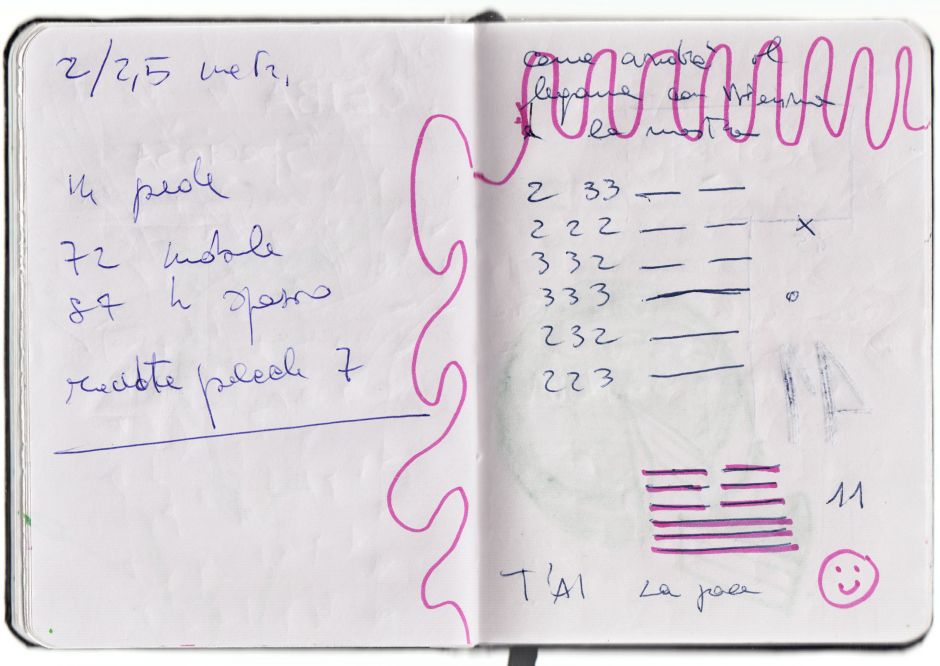 2/2,5 metri
14 piede
72 mobile
87 lo spasso
piccole 7
come andrà il
legame con
e la mostra
2 33
2 2 2 x
3 3 2
3 3 3 o
2 3 2
2 2 3
11
T'AI La pace